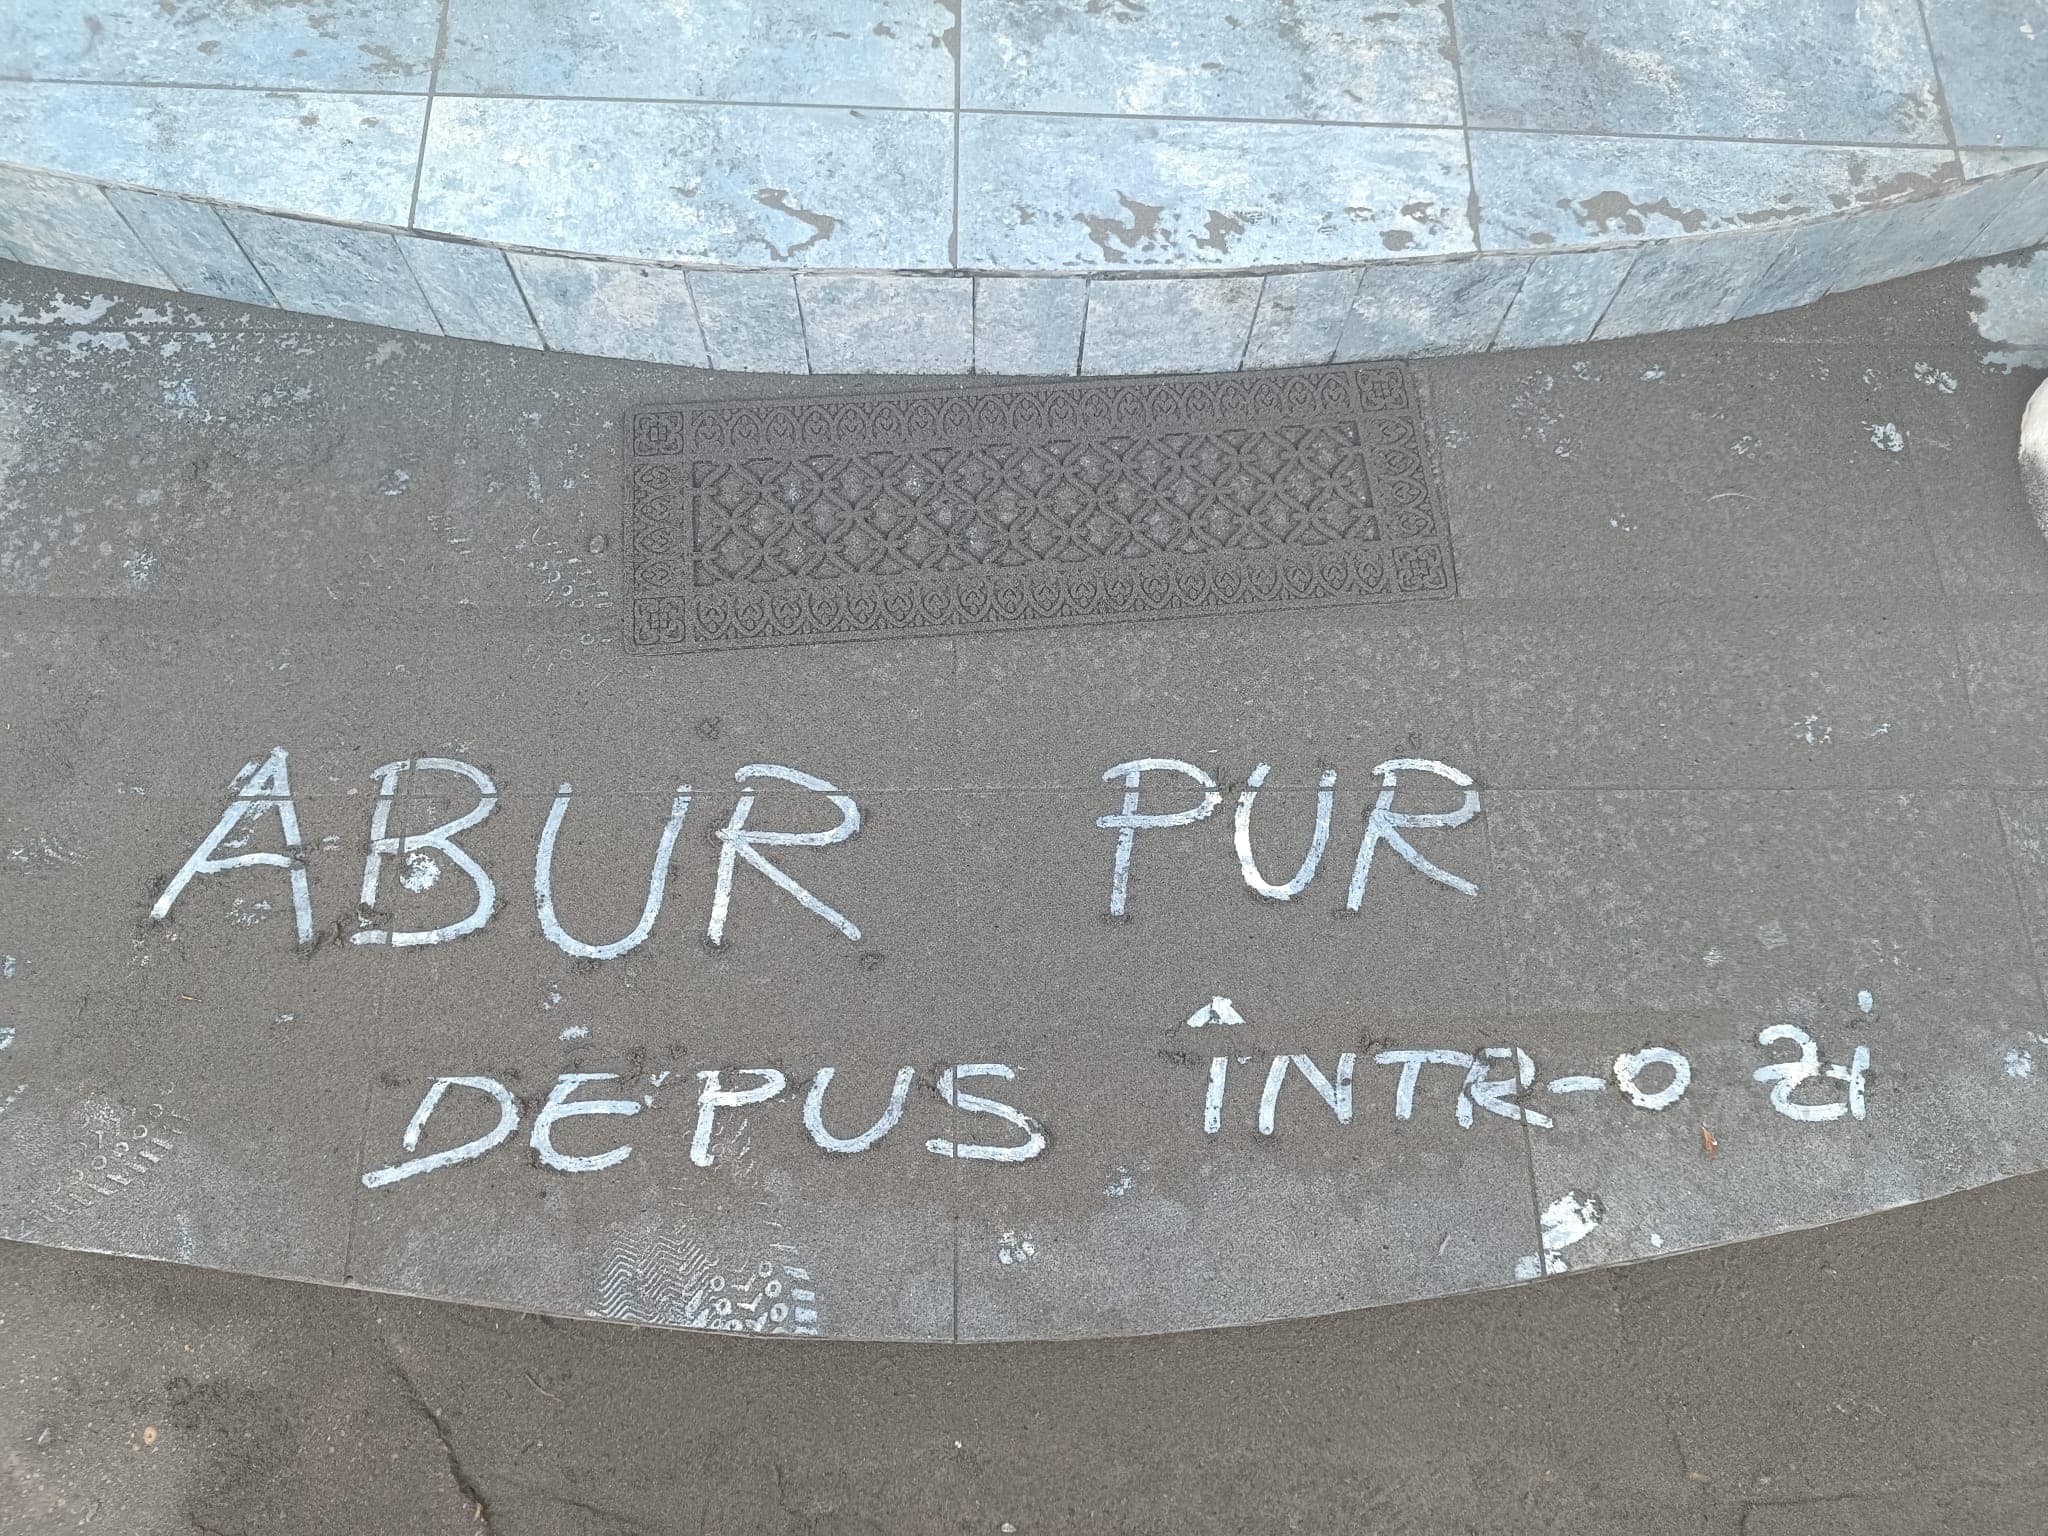 ABUR PUR
DEPUS ÎNTR-O Zi